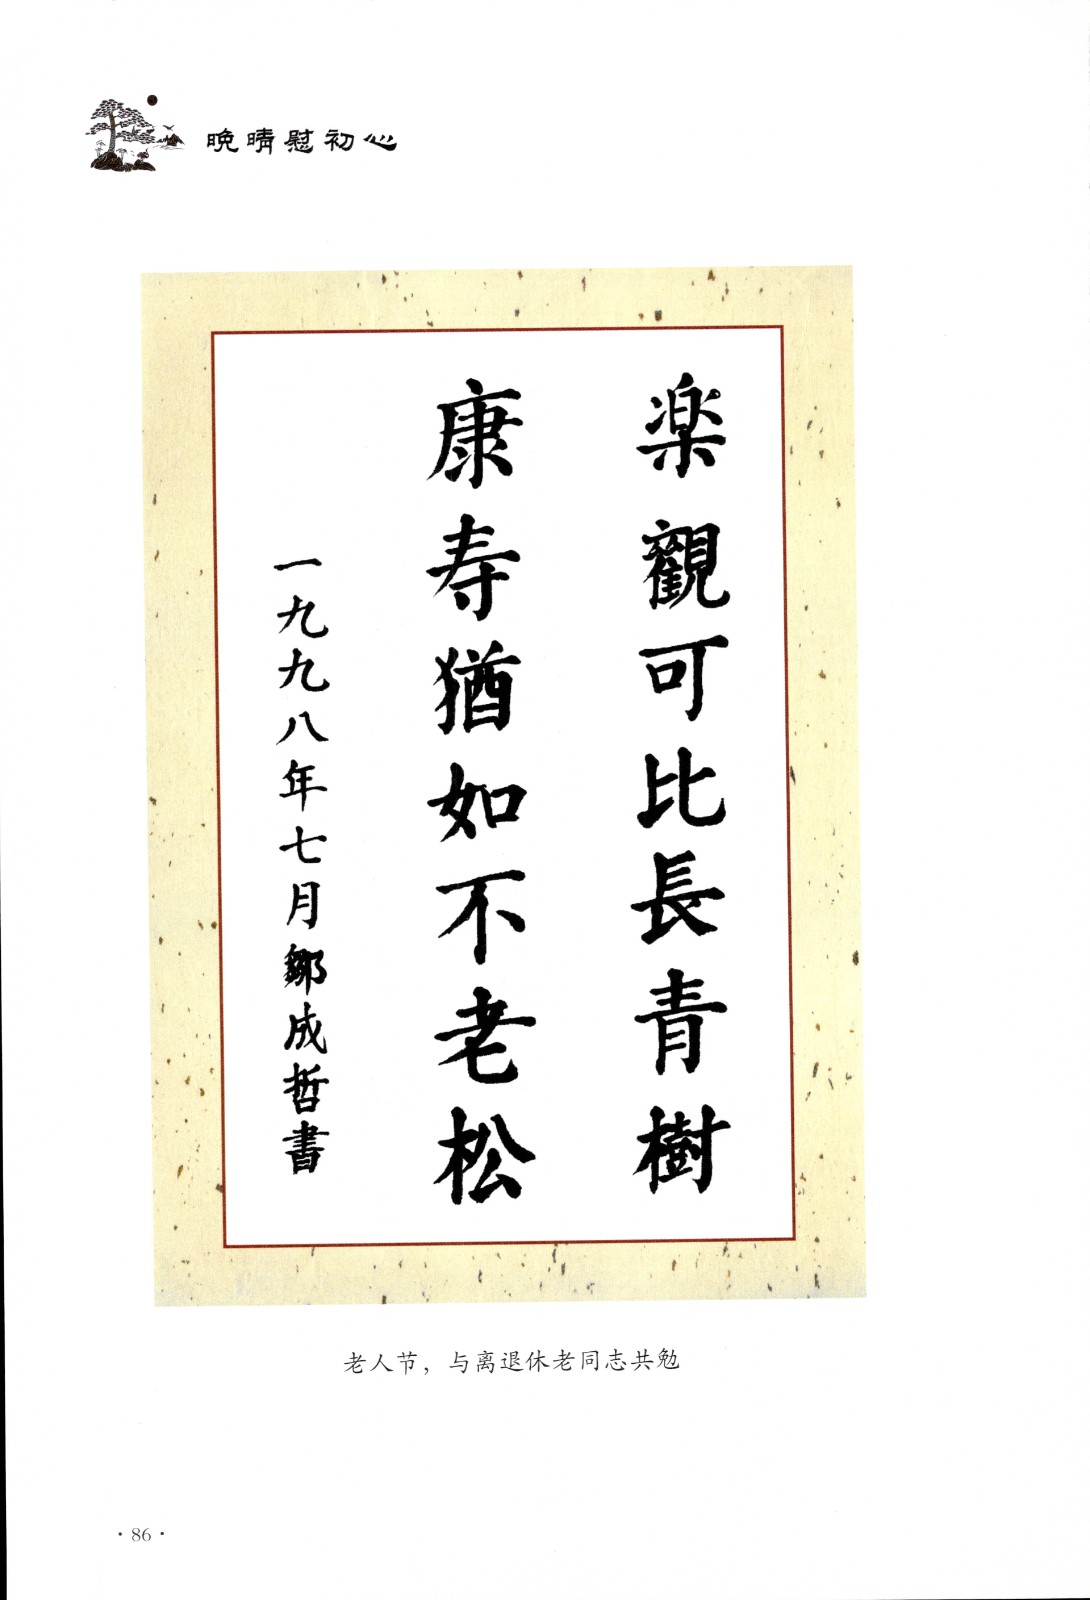 晚晴慰初心
楽觀可比長青樹
康寿猶如不老松
一九九八年七月鄒成哲書
老人节，与离退休老同志共勉
·86·